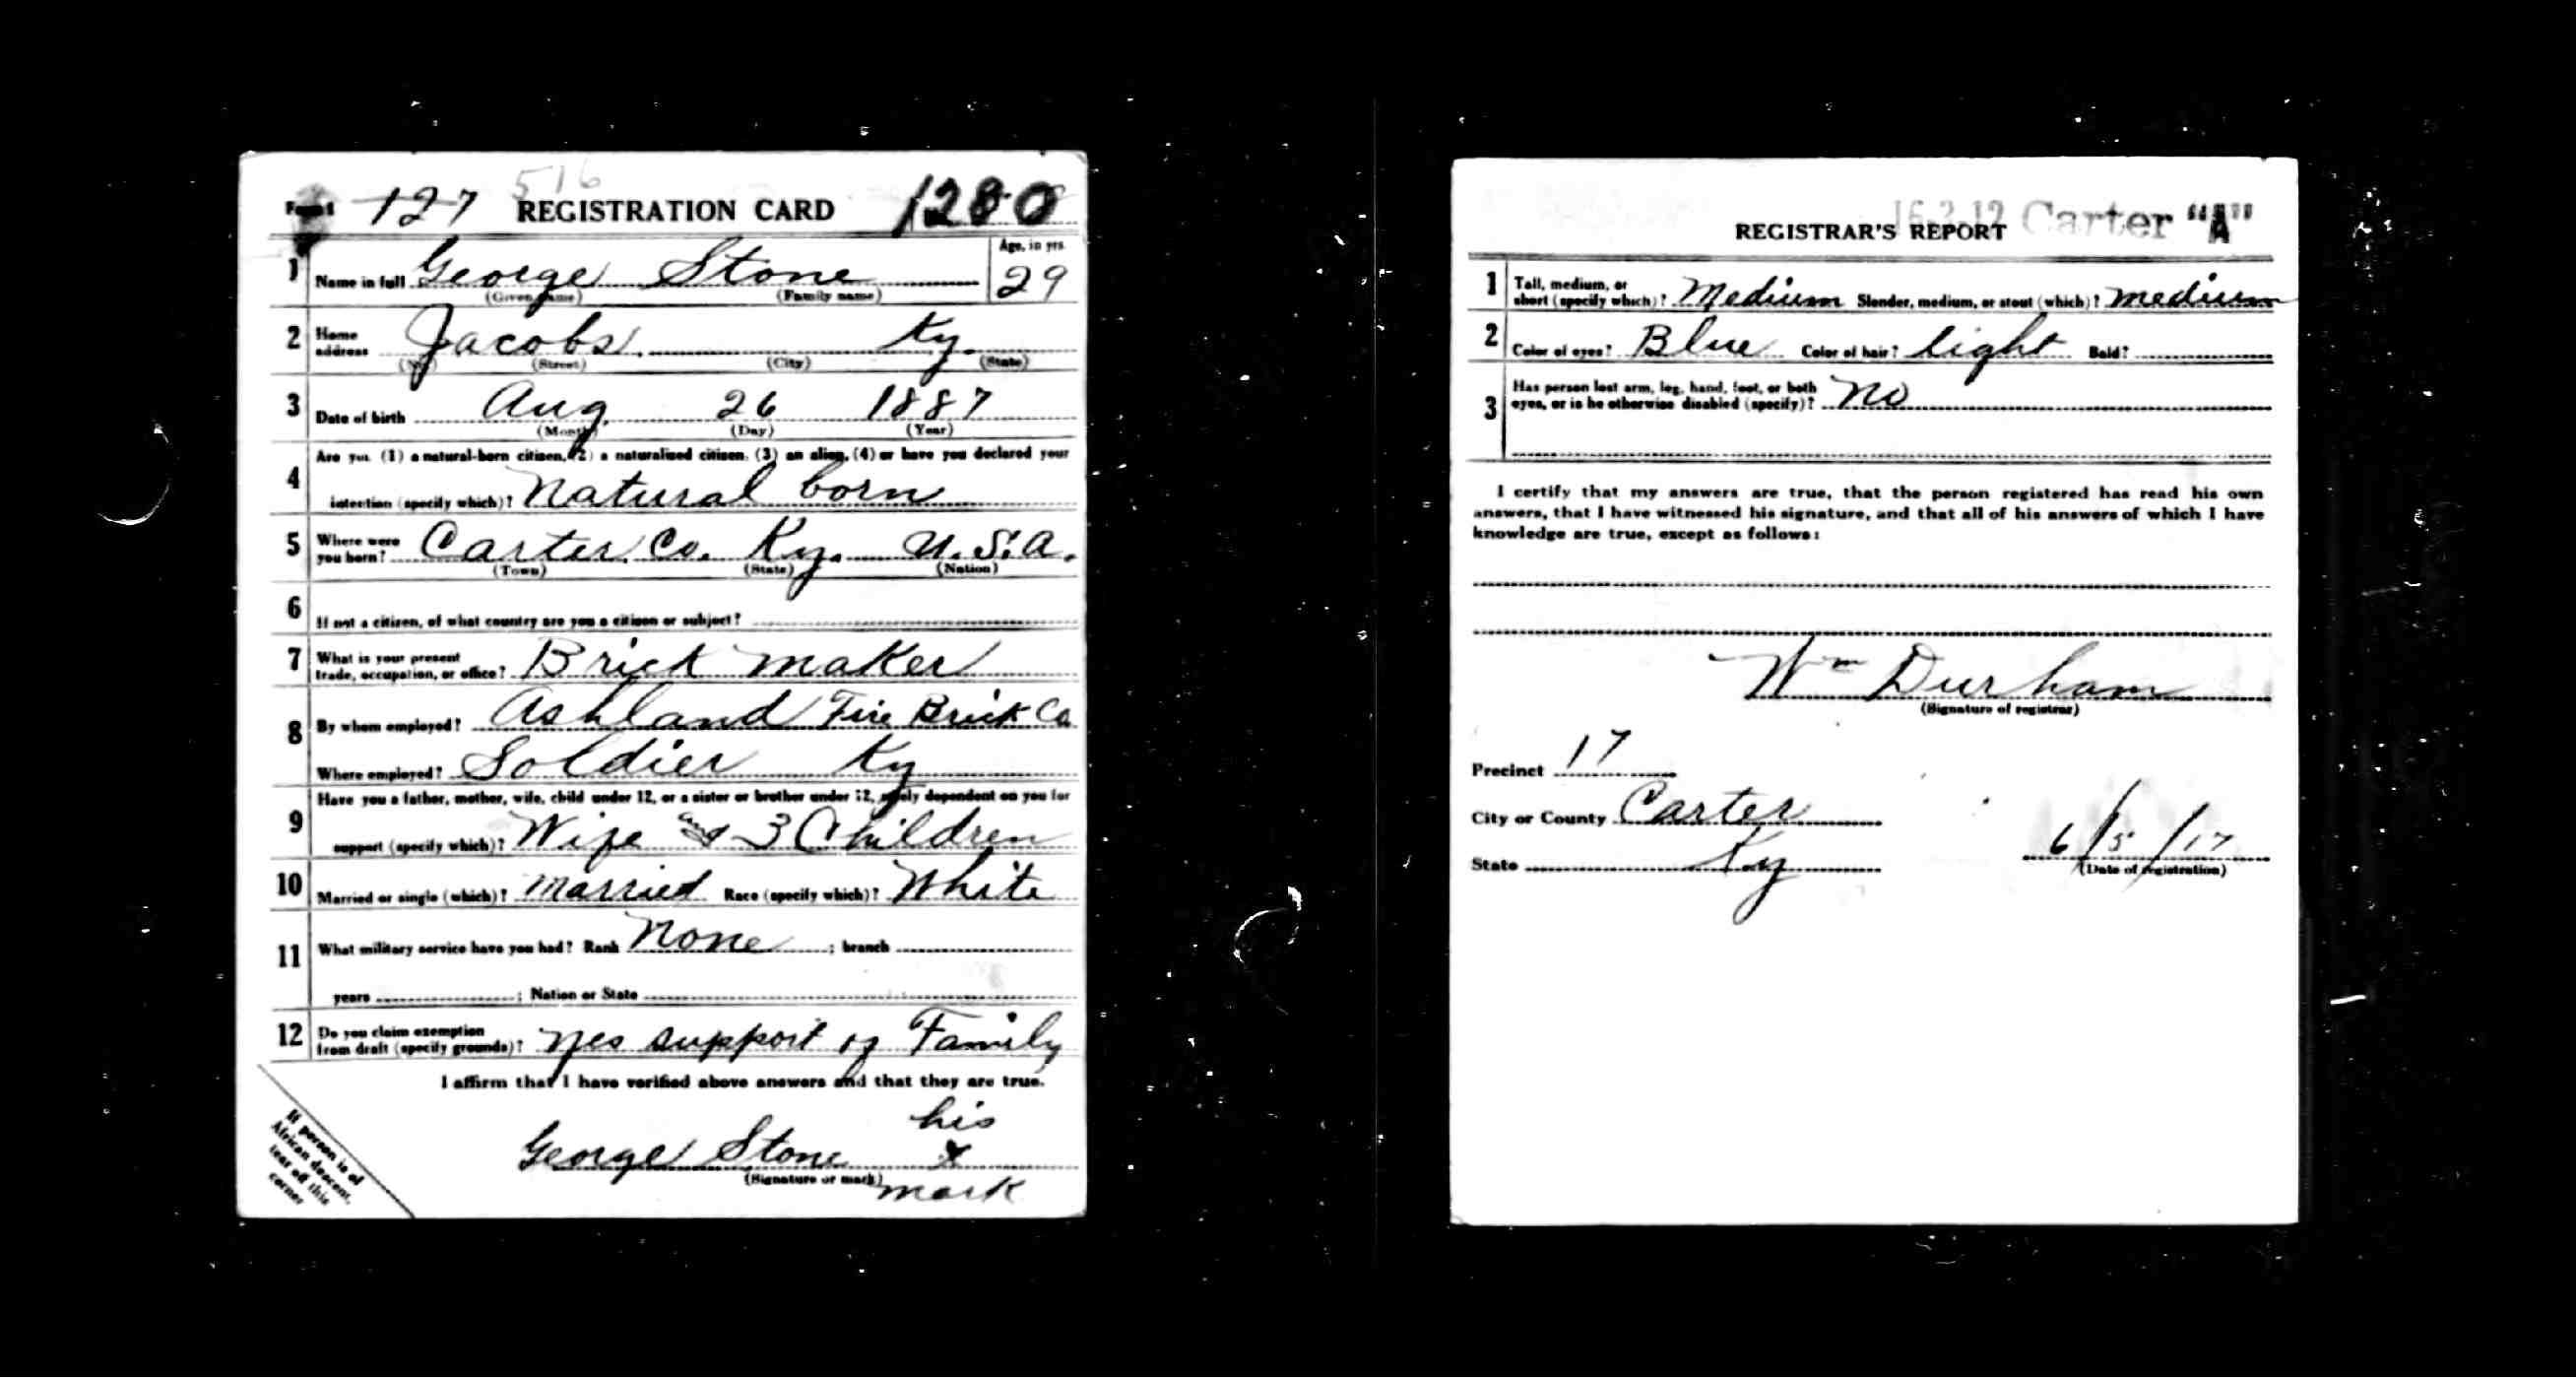 516
Form 1 127 REGISTRATION CARD 1280
1 Name in full George Stone Age, in yrs. 29
(Given name) (Family name)
2 Home address Jacobs. Ky.
(No.) (Street) (City) (State)
3 Date of birth Aug. 26 1887
(Month) (Day) (Year)
4 Are you (1) a natural-born citizen, (2) a naturalized citizen, (3) an alien, (4) or have you declared your
intention (specify which)? Natural born
5 Where were you born? Carter Co. Ky. U.S.A.
(Town) (State) (Nation)
6 If not a citizen, of what country are you a citizen or subject?
7 What is your present trade, occupation, or office? Brick maker
8 By whom employed? Ashland Fire Brick Co
Where employed? Soldier Ky
9 Have you a father, mother, wife, child under 12, or a sister or brother under 12, solely dependent on you for
support (specify which)? Wife and 3 Children
10 Married or single (which)? Married Race (specify which)? White
11 What military service have you had? Rank None ; branch
years ; Nation or State
12 Do you claim exemption from draft (specify grounds)? Yes support of Family
I affirm that I have verified above answers and that they are true.
his
George Stone x
(Signature or mark) mark
If person is of
African descent,
tear off this
corner
REGISTRAR'S REPORT 16-2-12 Carter "A"
1 Tall, medium, or short (specify which)? Medium Slender, medium, or stout (which)? medium
2 Color of eyes? Blue Color of hair? light Bald?
3 Has person lost arm, leg, hand, foot, or both
eyes, or is he otherwise disabled (specify)? No
I certify that my answers are true, that the person registered has read his own
answers, that I have witnessed his signature, and that all of his answers of which I have
knowledge are true, except as follows:
Wm Durham
(Signature of registrar)
Precinct 17
City or County Carter
State Ky 6/5/17
(Date of registration)